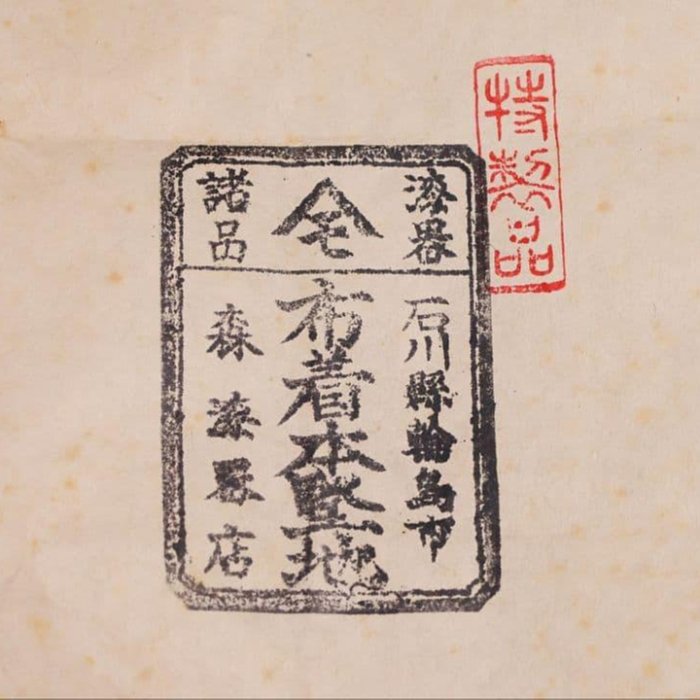 特製品
漆器
𠆢モ
諸品
石川縣輪島市
布着本堅地
森漆器店